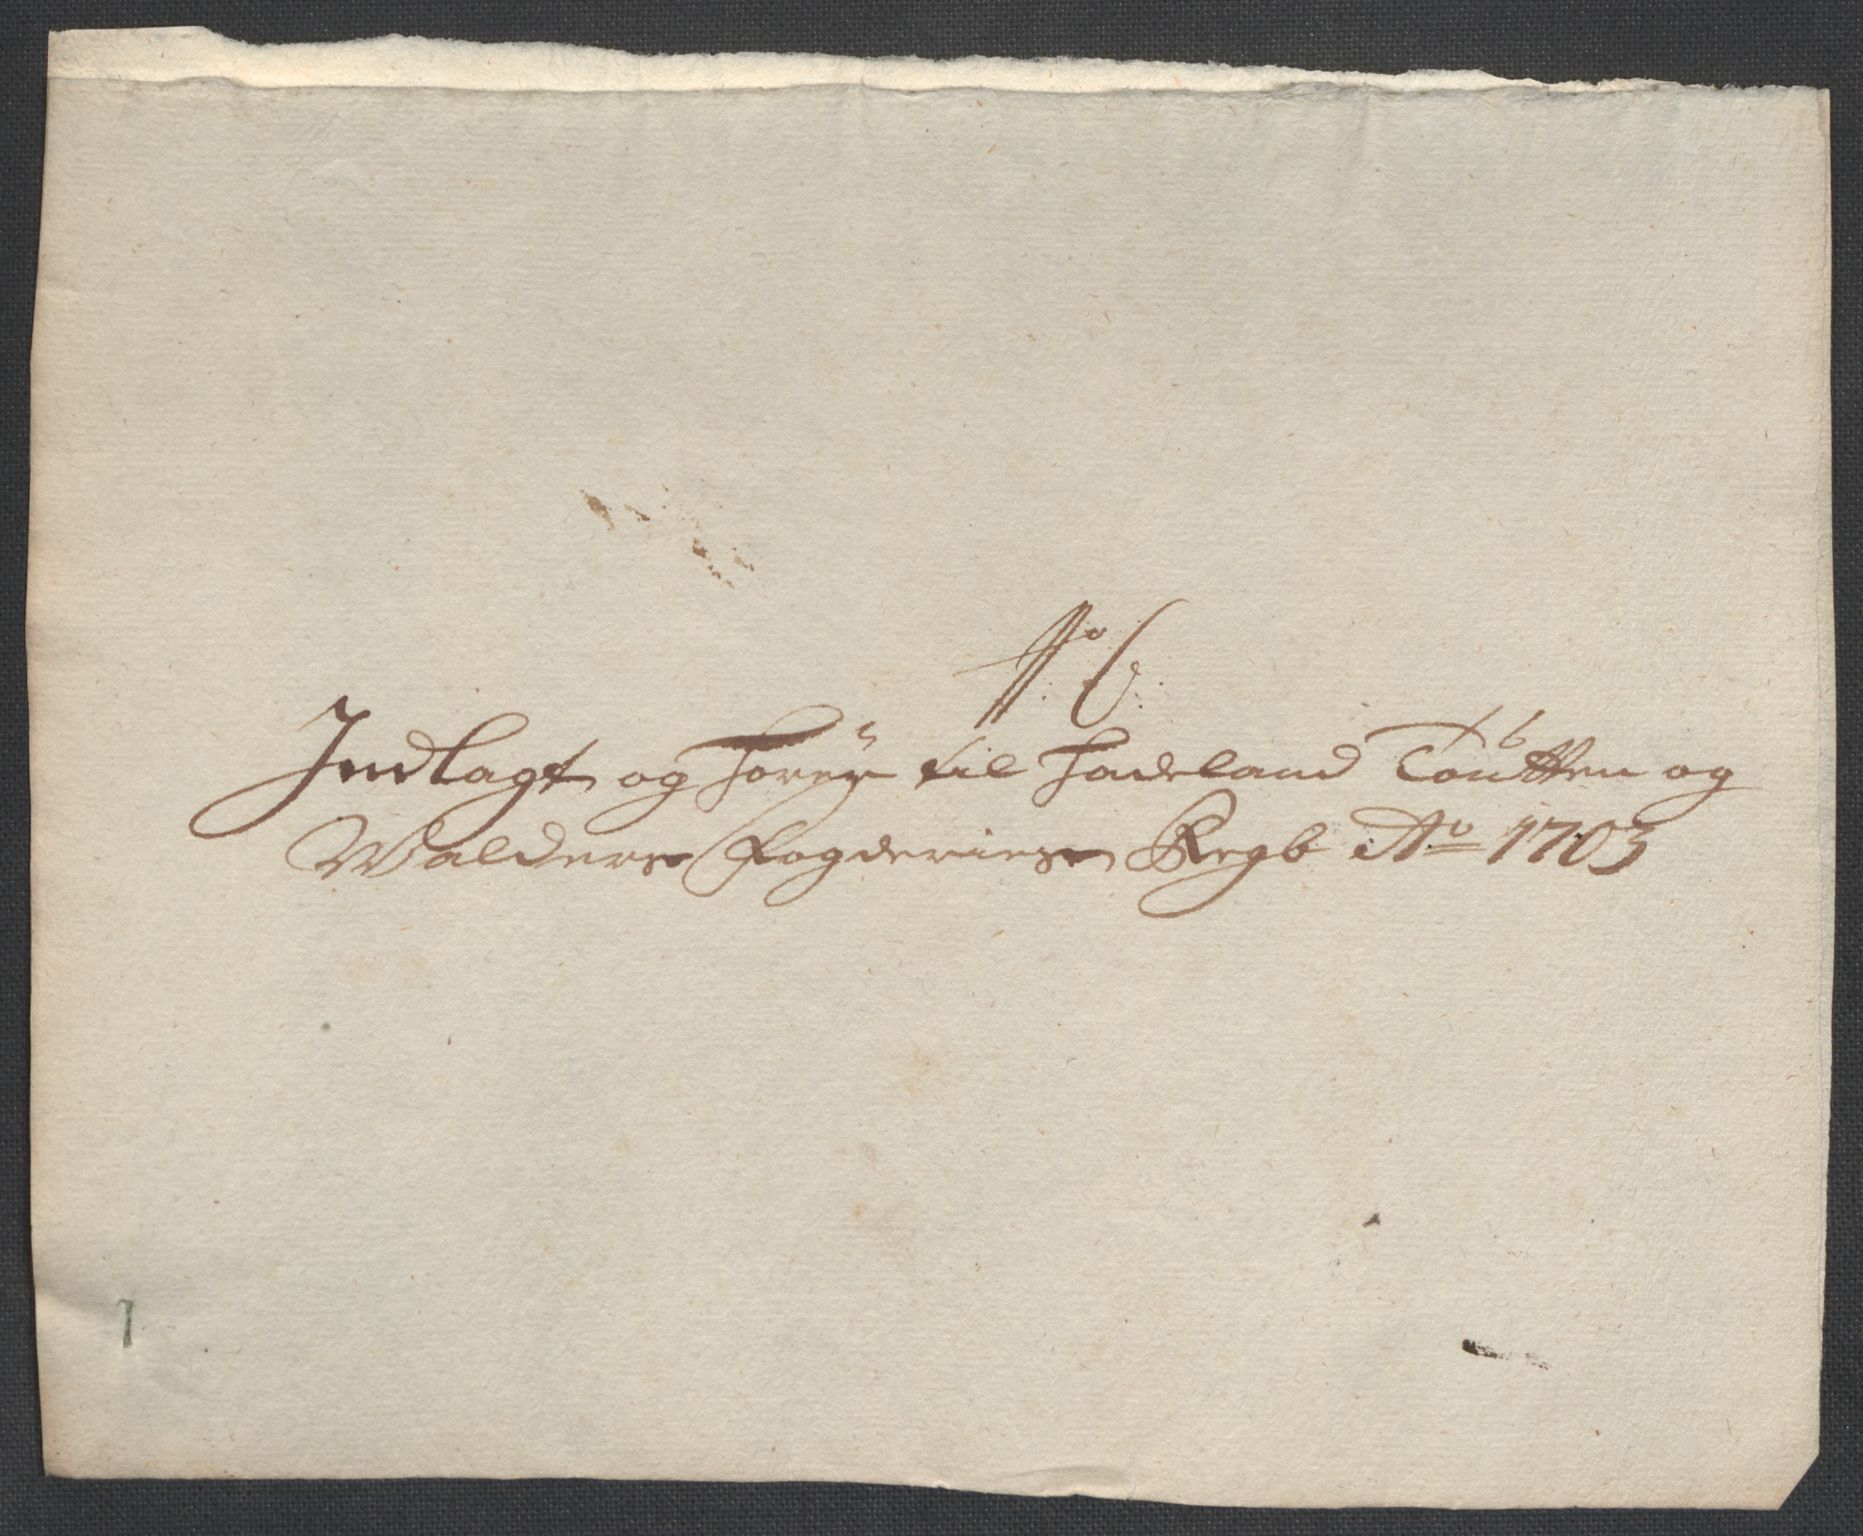 No 6
Indlagt og til Hadeland Toutten og
Walders Fogderies Regb Ao 1703